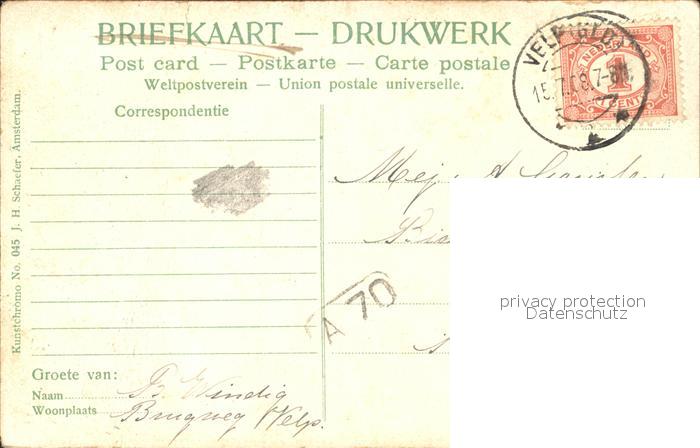 BRIEFKAART — DRUKWERK
Post card — Postkarte — Carte postale
Weltpostverein — Union postale universelle.
VELP (GLD.)
NEDERLAND
15.7.08.7-8N.
1
CENT
Correspondentie
Mej. A
privacy protection
Datenschutz
A 70
Kunstchromo No. 045 J. H. Schaefer, Amsterdam.
Groete van:
Naam B. Windig
Woonplaats Brugweg Velp.